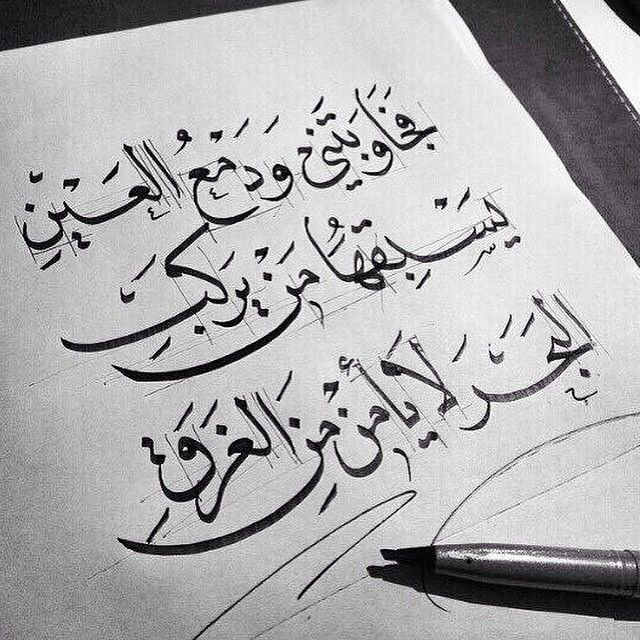 فَجَاوَبَتْنِي وَدَمْعُ الْعَيْنِ
يَسْبِقُهَا مَنْ يَرْكَبَ
الْبَحْرَ لَا يَأْمَنْ مِنَ الْغَرَقِ